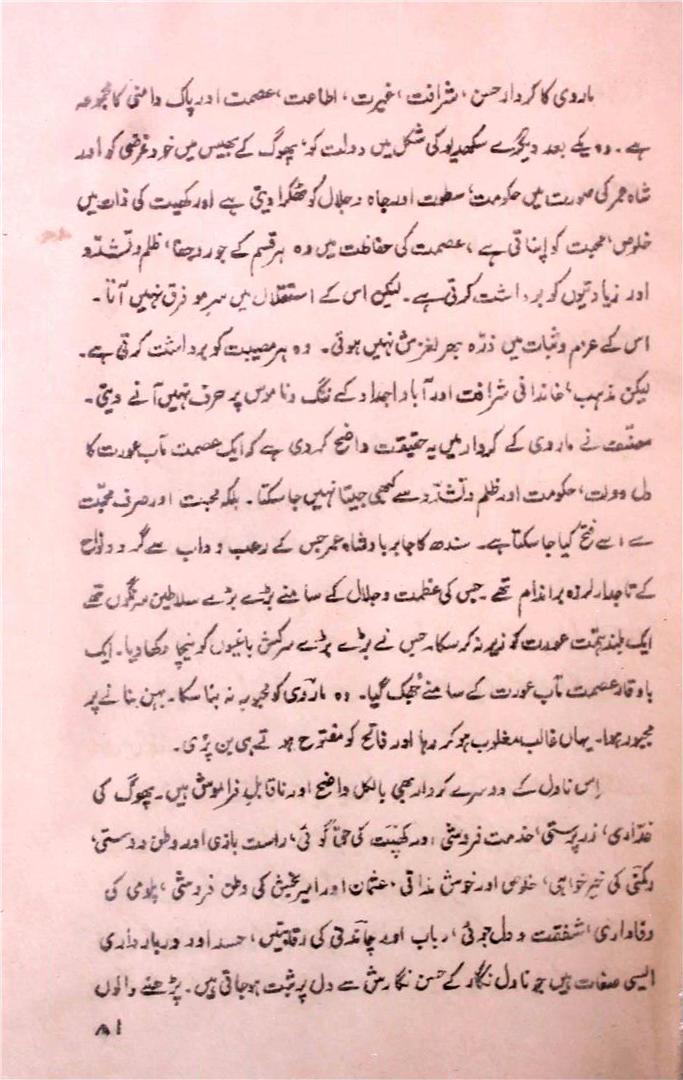 ماروی کا کردار حسن، شرافت، غیرت، اطاعت، عصمت اور پاک دامنی کا مجموعہ
ہے۔ وہ یکے بعد دیگرے سکھدیو کی شکل میں دولت کو، پھوگ کے بھیس میں خود غرضی کو اور
شاہ عمر کی صورت میں حکومت، سطوت اور جاہ و جلال کو ٹھکرا دیتی ہے اور کھیت کی ذات میں
خلوص، محبت کو اپناتی ہے، عصمت کی حفاظت میں وہ ہر قسم کے جور و جفا، ظلم و تشدّد
اور زیادتیوں کو برداشت کرتی ہے۔ لیکن اس کے استقلال میں سرِ مو فرق نہیں آتا۔
اس کے عزم و ثبات میں ذرّہ بھر لغزش نہیں ہوتی۔ وہ ہر مصیبت کو برداشت کرتی ہے۔
لیکن مذہب، خاندانی شرافت اور آباد اجداد کے ننگ و ناموس پر حرف نہیں آنے دیتی۔
مصنّف نے ماروی کے کردار میں یہ حقیقت واضح کر دی ہے کہ ایک عصمت مآب عورت کا
دل دولت، حکومت اور ظلم و تشدّد سے کبھی جیتا نہیں جا سکتا۔ بلکہ محبت اور صرف محبّت
سے اسے فتح کیا جا سکتا ہے۔ سندھ کا جابر بادشاہ عمر جس کے رعب و داب سے گرد و نواح
کے تاجدار لرزہ براندام تھے۔ جس کی عظمت و جلال کے سامنے بڑے بڑے سلاطین سرنگوں تھے
ایک بلند ہمّت عورت کو زیر نہ کر سکا۔ جس نے بڑے بڑے سرکش باغیوں کو نیچا دکھا دیا۔ ایک
باوقار عصمت مآب عورت کے سامنے جُھک گیا۔ وہ ماروی کو محبوبہ نہ بنا سکا۔ بہن بنانے پر
مجبور ہوا۔ یہاں غالب مغلوب ہو کر رہا اور فاتح کو مفتوح ہوتے ہی بن پڑی۔
اِس ناول کے دوسرے کردار بھی بالکل واضح اور ناقابلِ فراموش ہیں۔ پھوگ کی
غدّاری، زر پرستی، خدمت فروشی اور کھیت کی حق گوئی، راست بازی اور وطن دوستی،
رکمنی کی خیر خواہی، خلوص اور خوش مذاقی، عثمان اور امیر بخش کی وطن فروشی، پلومی کی
وفاداری، شفقت و دل جوئی، رباب اور چاندنی کی رقابتیں، حسد اور دربارداری
ایسی صفات ہیں جو ناول نگار کے حسن نگارش سے دل پر ثبت ہو جاتی ہیں۔ پڑھنے والوں